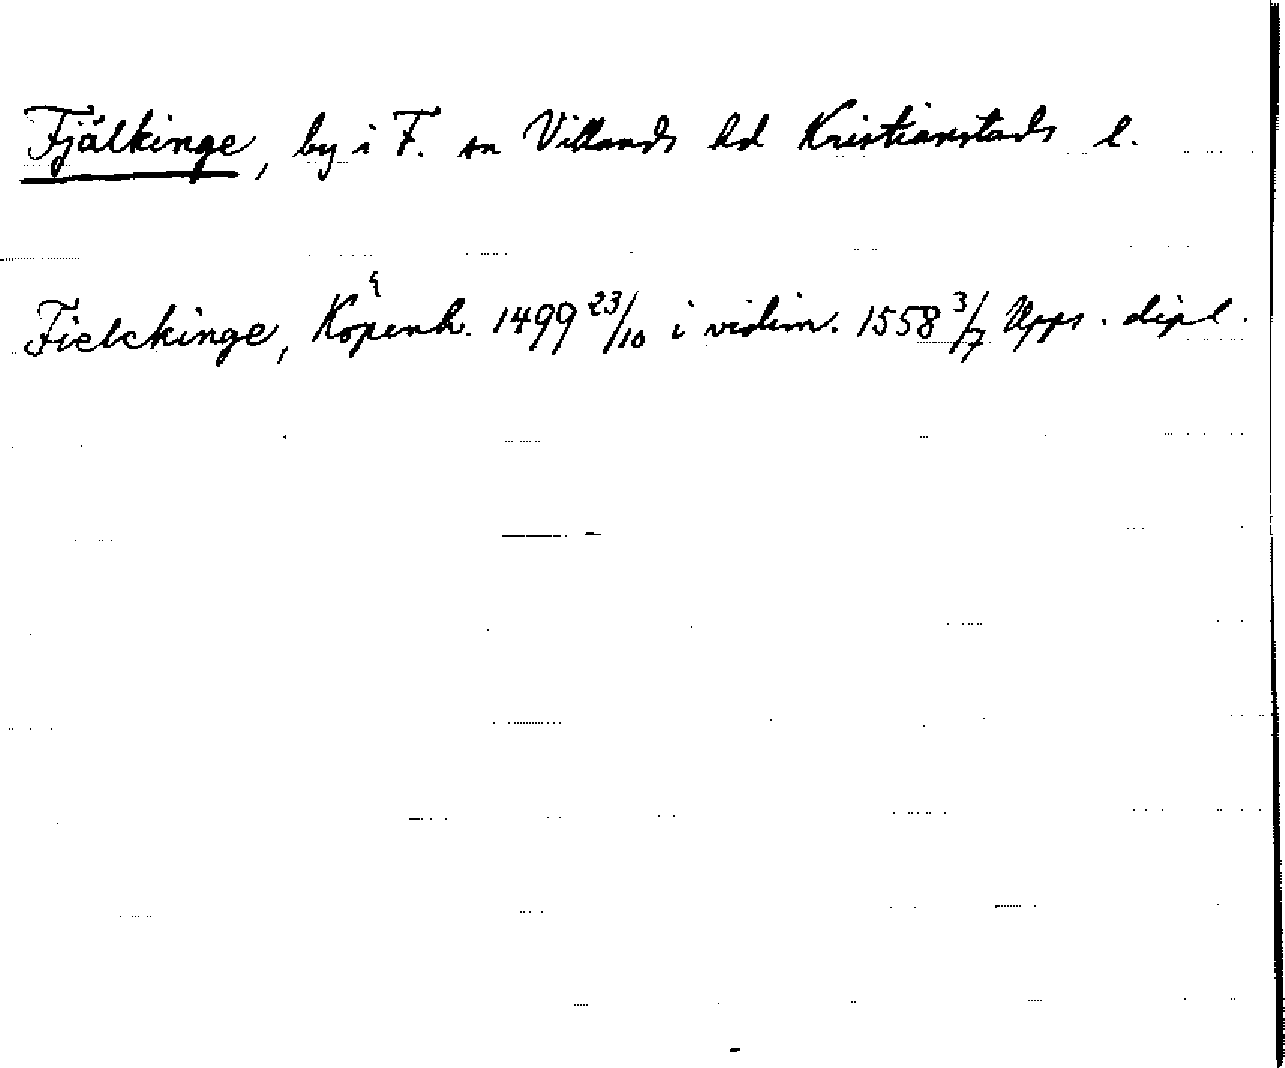 Fjälkinge, by i F. sn Villands hd Kristianstads l.
Fielckinge, Köpenh. 1499 23/10 i vidim. 1558 3/7 Upps. dipl.